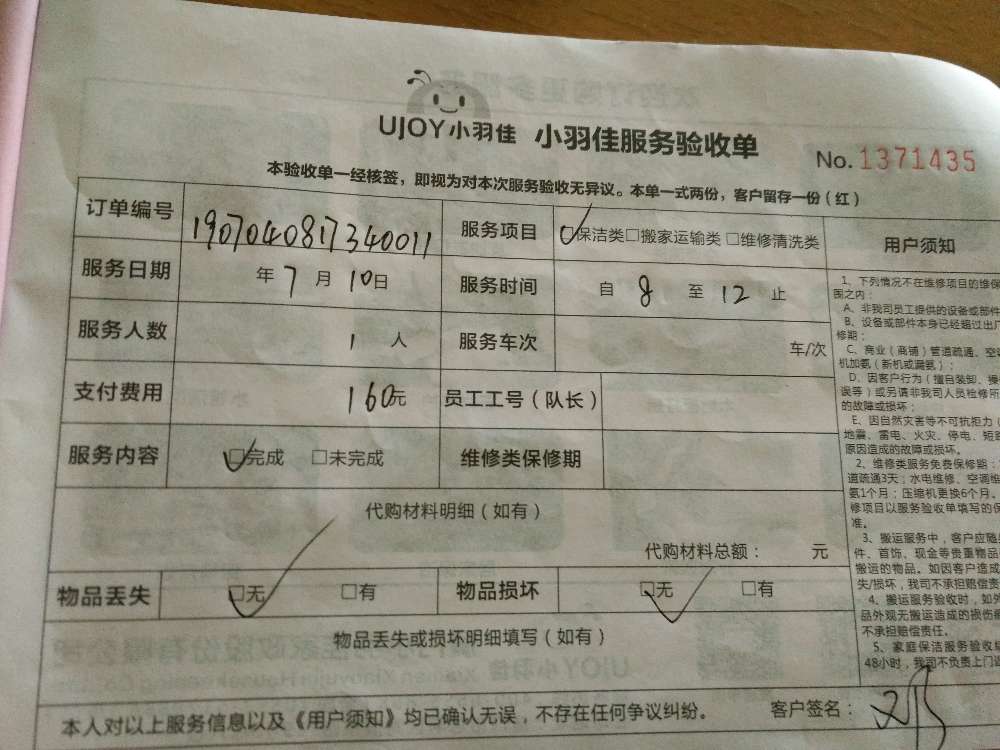 UJOY小羽佳 小羽佳服务验收单
No. 1371435
本验收单一经核签，即视为对本次服务验收无异议。本单一式两份，客户留存一份（红）
订单编号 1907040817340011 服务项目 ☑保洁类□搬家运输类 □维修清洗类
服务日期 年 7 月 10日 服务时间 自 8 至 12 止
服务人数 1 人 服务车次 车/次
支付费用 160元 员工工号（队长）
服务内容 ☑完成 □未完成 维修类保修期
代购材料明细（如有）
代购材料总额： 元
物品丢失 ☑无 □有 物品损坏 ☑无 □有
物品丢失或损坏明细填写（如有）
本人对以上服务信息以及《用户须知》均已确认无误，不存在任何争议纠纷。 客户签名：
用户须知
1、下列情况不在维修项目的维保
围之内：
A、非我司员工提供的设备或部件
B、设备或部件本身已经超过出厂
修期；
C、商业（商铺）管道疏通、空调
机加氨（新机或漏氨）；
D、因客户行为（擅自装卸、操
误等）或另请非我司人员检修所
的故障或损坏；
E、因自然灾害等不可抗拒力（
地震、雷电、火灾、停电、短路
原因造成的故障或损坏。
2、维修类服务免费保修期：
道疏通3天；水电维修、空调维
氨1个月；压缩机更换6个月。
修项目以服务验收单填写的保
准。
3、搬运服务中，客户应随
件、首饰、现金等贵重物品
搬运的物品。如因客户造成
失/损坏，我司不承担赔偿责
4、搬运服务验收时，如外
品外观无搬运造成的损伤
不承担赔偿责任。
5、家庭保洁服务验收
48小时，我司不负责上门